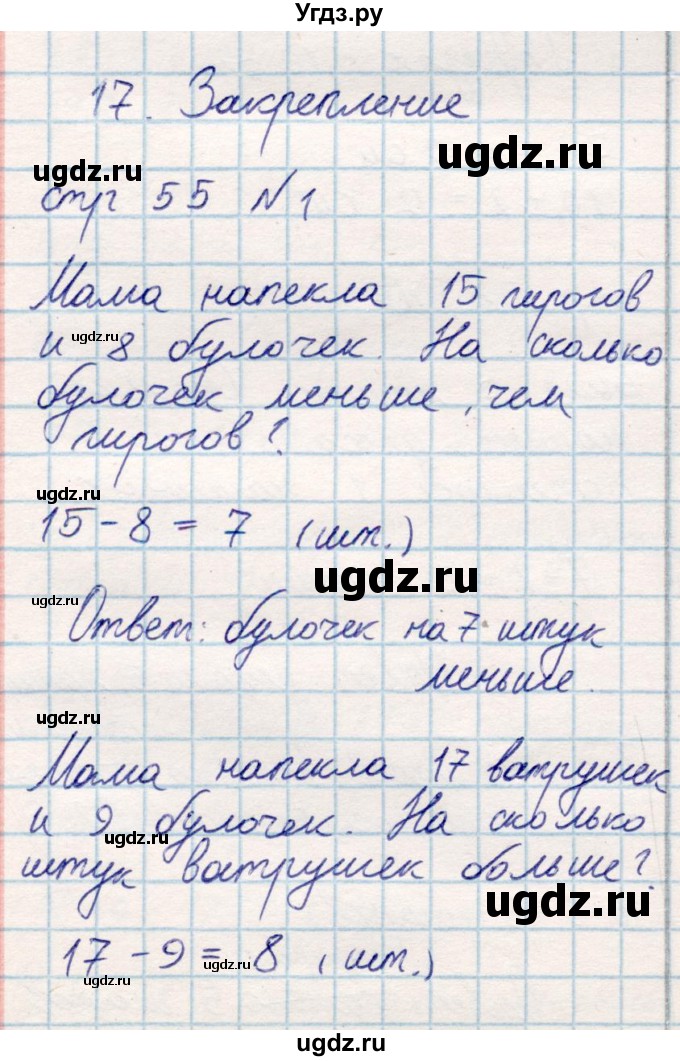 Угдз.ру
17. Закрепление
ugdz.ru
ugdz.ru
стр 55 №1
Мама напекла 15 пирогов
ugdz.ru
и 8 булочек. На сколько
булочек меньше, чем
пирогов?
ugdz.ru
15 - 8 = 7 (шт.)
ugdz.ru
ugdz.ru
Ответ: булочек на 7 штук
меньше.
ugdz.ru
Мама напекла 17 ватрушек
и 9 булочек. На сколько
ugdz.ru
штук ватрушек больше?
ugdz.ru
17 - 9 = 8 (шт.)
ugdz.ru
ugdz.ru
ugdz.ru